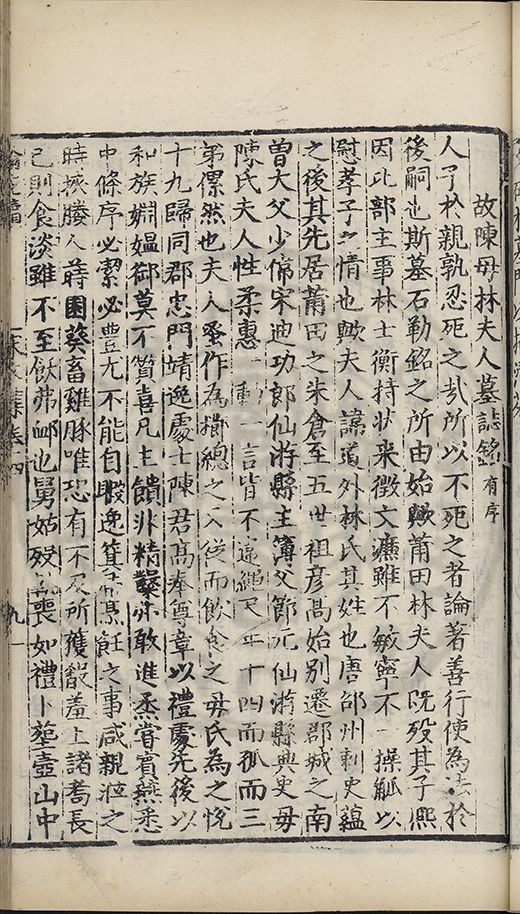 故陳母林夫人墓誌銘有序
人子於親孰忍死之哉所以不死之者論著善行使為法於
後嗣也斯墓石勒銘之所由始歟莆田林夫人既歿其子熙
因比部主事林士衡持狀來徵文濂雖不敏寧不一操觚以
慰孝子之情也歟夫人諱道外林氏其姓也唐邵州刺史蘊
之後其先居莆田之朱倉至五世祖彥高始別遷郡城之南
曾大父少偁宋迪功郎仙游縣主簿父節元仙游縣典史毋
陳氏夫人性柔惠一動一言皆不違繩尺年十四而孤而三
弟儽然也夫人蚤作為櫛總之入從而飲食之毋氏為之悅
十九歸同郡忠門靖逸處士陳君高奉尊章以禮處先後以
和族姻媼御莫不贊喜凡主饋非精鑿弗敢進烝嘗賓燕悉
中條序必潔必豐尤不能自暇逸箕帚烹飪之事咸親涖之
時械滕人蒔園葵畜雞豚唯恐有不及所獲殽羞上諸耆長
己則食淡雖不至飫弗卹也舅姑歿執喪如禮卜塟壺山中